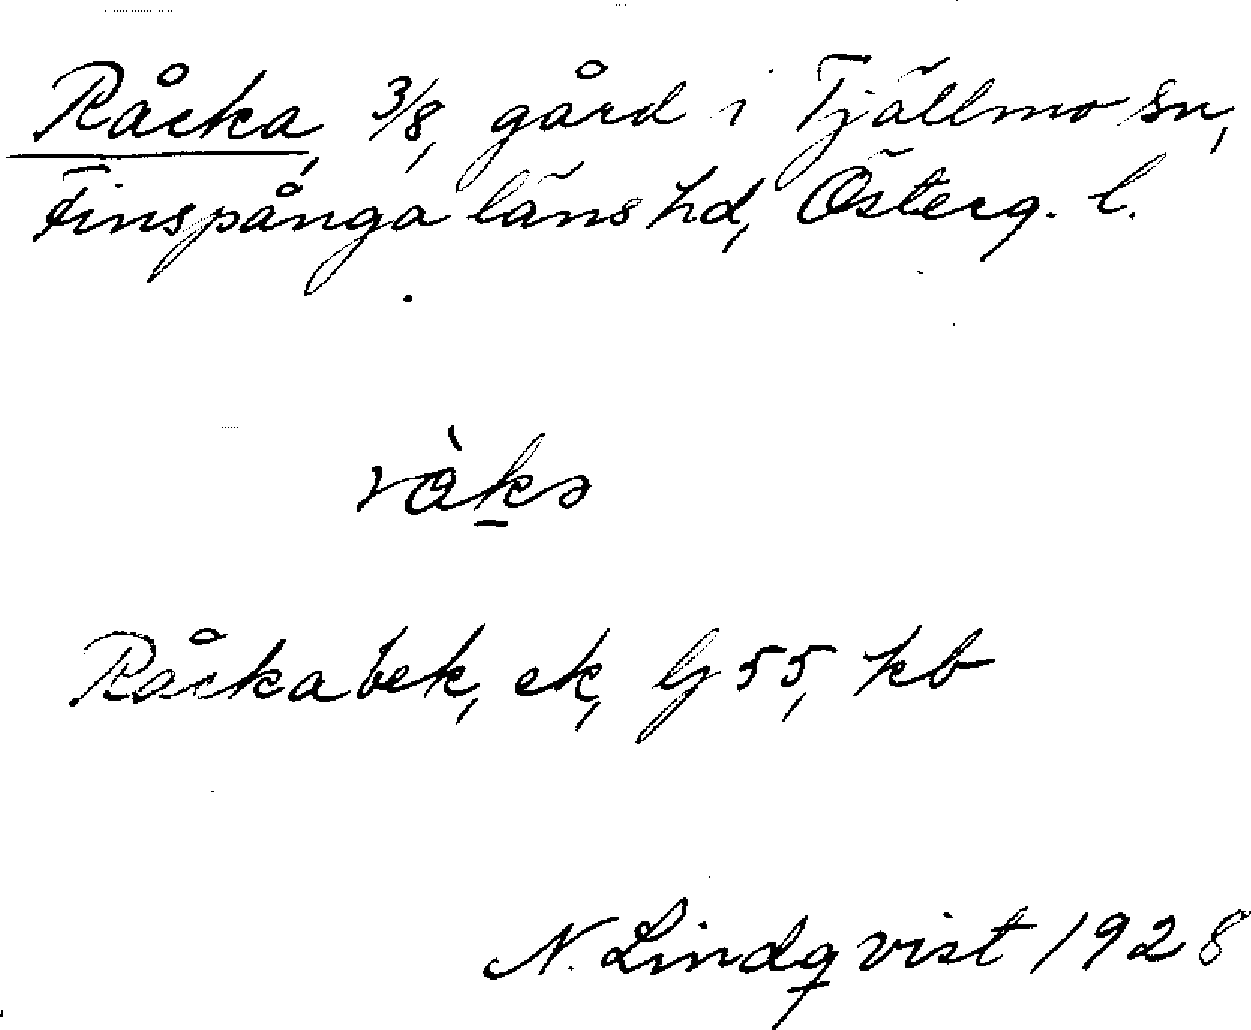 Råcka, 3/8, gård i Tjällmo sn,
Finspånga läns hd, Österg. l.
Råckabek, ek, Lj 55, kb
N. Lindqvist 1928